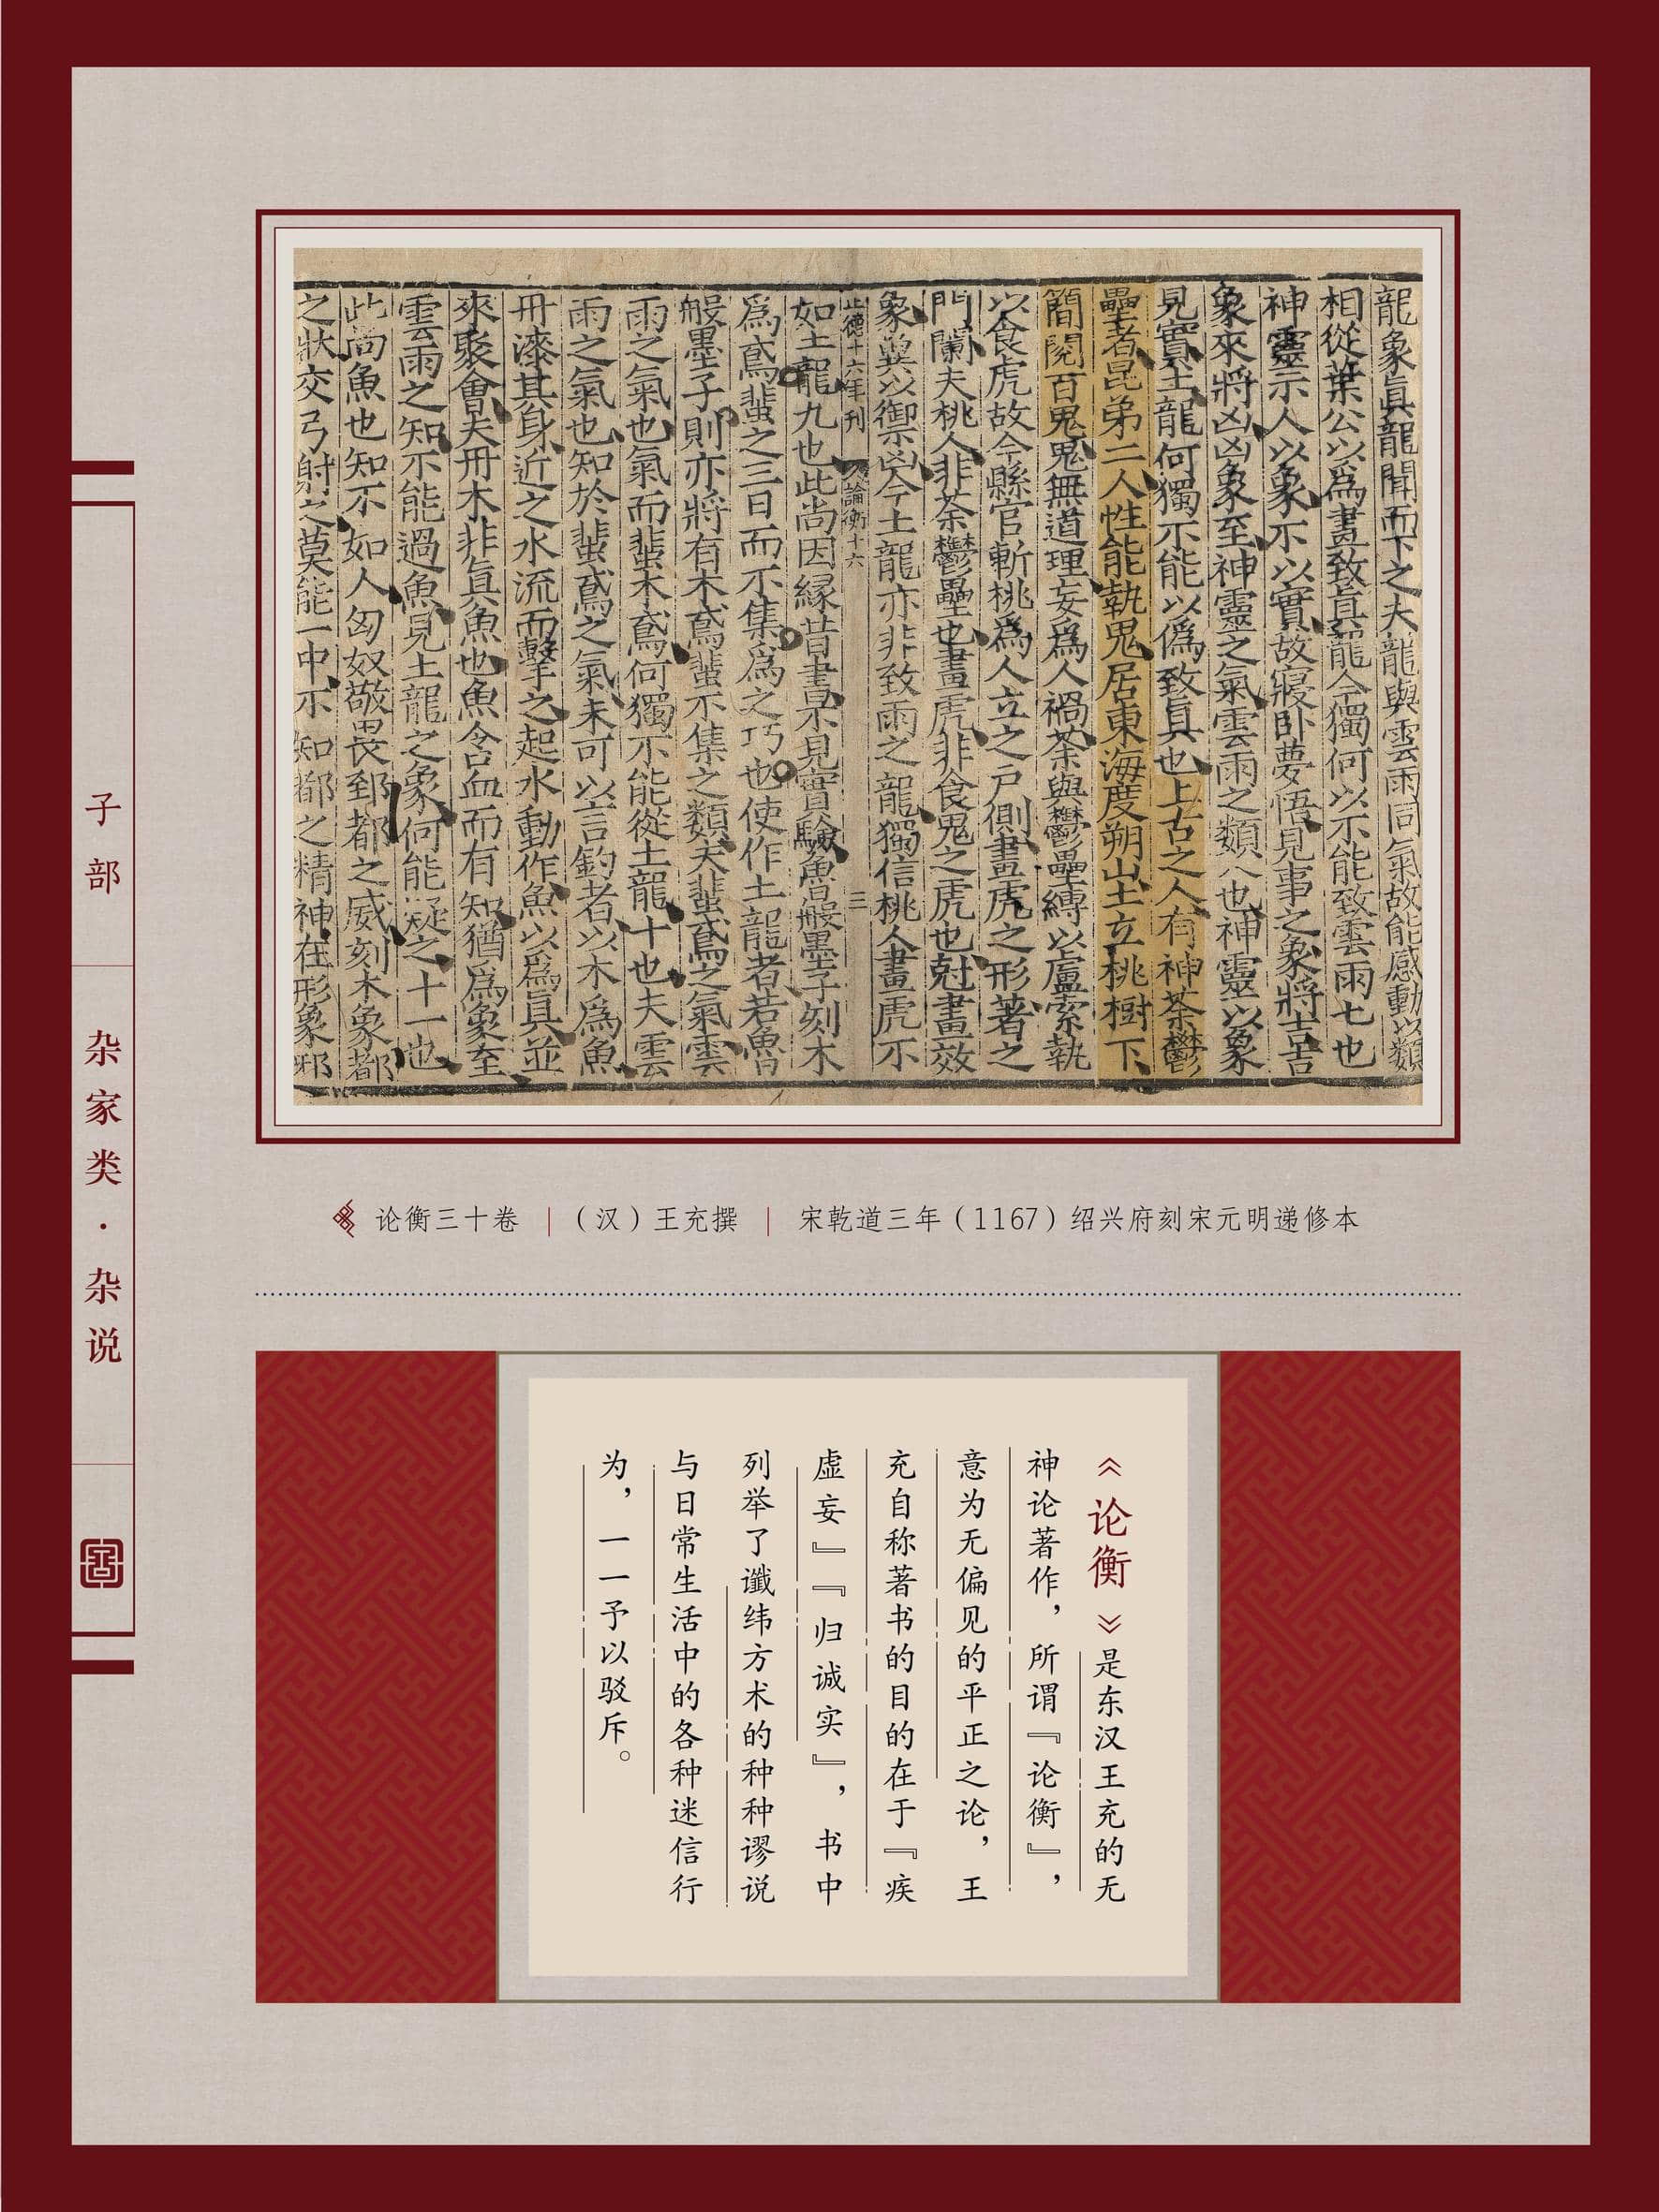 龍象眞龍聞而下之夫龍與雲雨同氣故能感動以類
相從葉公以爲畫致眞龍今獨何以不能致雲雨七也
神靈示人以象不以實故寢卧夢悟見事之象將吉吉
象來將凶凶象至神靈之氣雲雨之類八也神靈以象
見實土龍何獨不能以僞致眞也上古之人有神荼鬱
壘者昆弟二人性能執鬼居東海度朔山上立桃樹下
簡閱百鬼鬼無道理妄爲人禍荼與鬱壘縛以盧索執
以食虎故今縣官斬桃爲人立之户側畫虎之形著之
門闌夫桃人非荼鬱壘也畫虎非食鬼之虎也尅畫效
象兾以禦凶今土龍亦非致雨之龍獨信桃人畫虎不
正德十六年刊 論衡十六 三
如土龍九也此尚因緣昔書不見實驗魯般墨子刻木
爲鳶蜚之三日而不集爲之巧也使作土龍者若魯
般墨子則亦將有木鳶蜚不集之類夫蜚鳶之氣雲
雨之氣也氣而蜚木鳶何獨不能從土龍十也夫雲
雨之氣也知於蜚鳶之氣未可以言釣者以木爲魚
丹漆其身近之水流而擊之起水動作魚以爲眞並
來聚會夫丹木非眞魚也魚含血而有知猶爲象至
雲雨之知不能過魚見土龍之象何能疑之十一也
此尚魚也知不如人匈奴敬畏郅都之威刻木象都
之狀交弓射之莫能一中不知都之精神在形象邪
子部
杂家类·杂说
论衡三十卷｜（汉）王充撰｜宋乾道三年（1167）绍兴府刻宋元明递修本
《论衡》是东汉王充的无
神论著作，所谓『论衡』，
意为无偏见的平正之论，王
充自称著书的目的在于『疾
虚妄』『归诚实』，书中
列举了谶纬方术的种种谬说
与日常生活中的各种迷信行
为，一一予以驳斥。